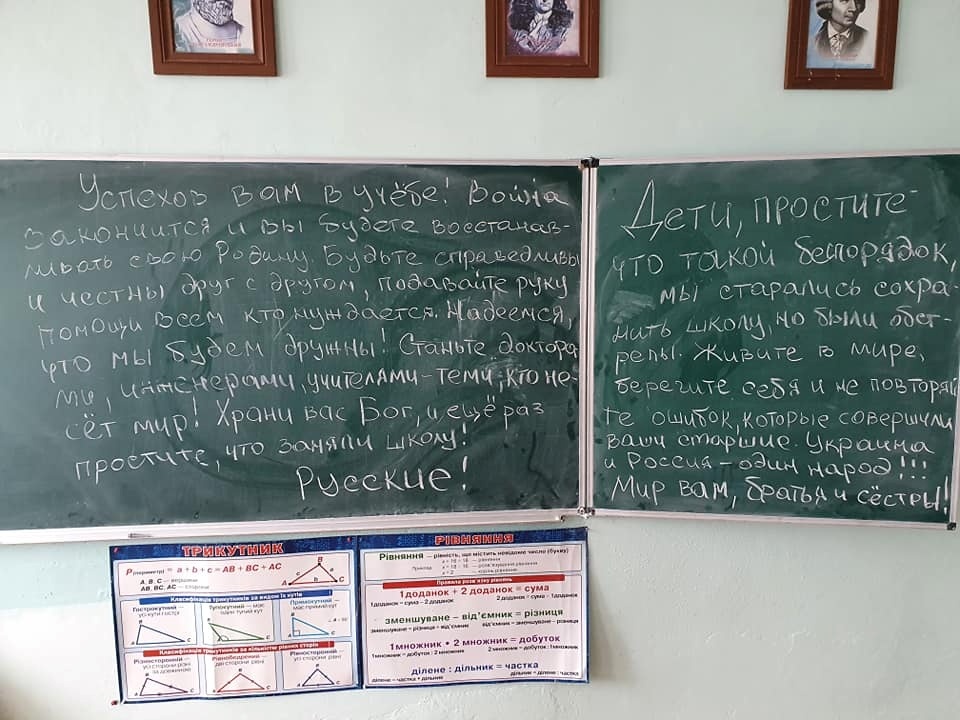 Успехов вам в учёбе! Война
закончится и вы будете восстанав-
ливать свою Родину. Будьте справедливы
и честны друг с другом, подавайте руку
помощи всем кто нуждается. Надеемся,
что мы будем дружны! Станьте доктора-
ми, инженерами, учителями - теми, кто не-
сёт мир! Храни вас Бог, и ещё раз
простите, что заняли школу!
Русские!
Дети, простите
что такой беспорядок,
мы старались сохра-
нить школу, но были обст-
релы. Живите в мире,
берегите себя и не повторяй
те ошибок, которые совершили
ваши старшие. Украина
и Россия - один народ!!!
Мир вам, братья и сёстры!
ТРИКУТНИК
P(периметр) = a + b + c = AB + BC + AC
A, B, C — вершини
AB, BC, AC — сторони
Класифікація трикутників за видом їх кутів
Гострокутний —
усі кути гострі
Тупокутний — має
один тупий кут
Прямокутний —
має прямий кут
Класифікація трикутників за кількістю рівних сторін
Різносторонній —
усі сторони різні
за довжиною
Рівнобедрений —
дві сторони рівні
Рівносторонній —
усі сторони рівні
РІВНЯННЯ
Рівняння — рівність, що містить невідоме число (букву)
Правила розв'язку рівнянь
1доданок + 2 доданок = сума
1доданок = сума - 2 доданок
2 доданок = сума - 1доданок
зменшуване – від'ємник = різниця
зменшуване = різниця + від'ємник
від'ємник = зменшуване – різниця
1множник • 2 множник = добуток
1множник = добуток : 2 множник
2 множник = добуток : 1множник
ділене : дільник = частка
ділене = частка • дільник
дільник = ділене : частка